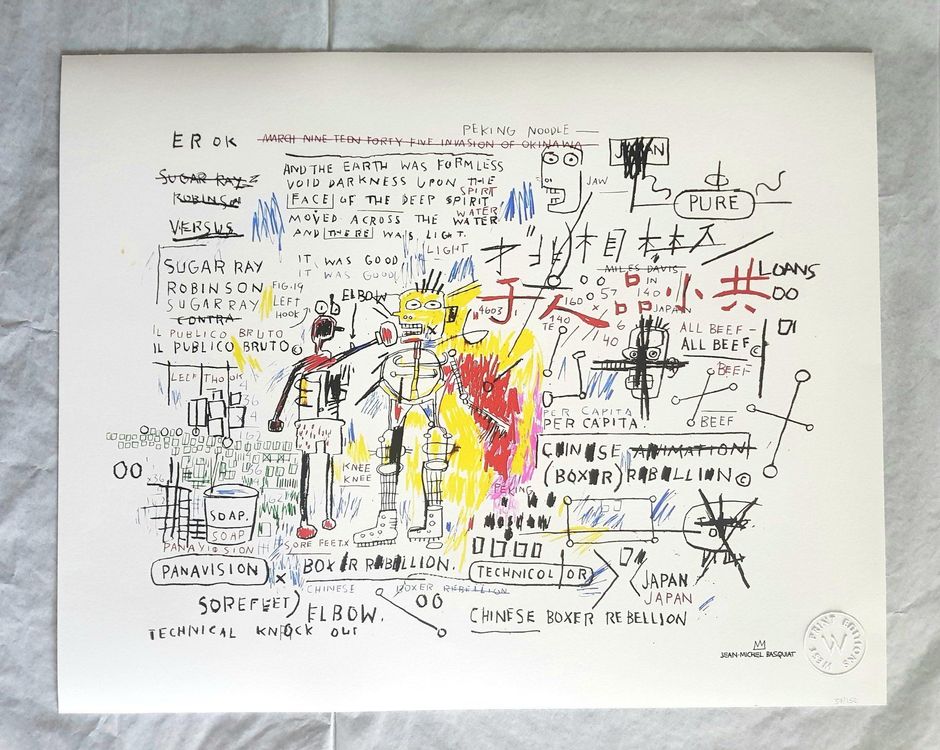 PEKING NOODLE
EROK
MARCH NINE TEEN FORTY FIVE INVASION OF OKINAWA
SUGAR RAY
ROBINSON
VERSUS
AND THE EARTH WAS FORMLESS
VOID DARKNESS UPON THE
SPIRIT
FACE OF THE DEEP SPIRIT
WATER
MOVED ACROSS THE WATER
AND THERE WAS LIGHT.
LIGHT
IT WAS GOOD
IT WAS GOOD
JAW
PURE
SUGAR RAY
ROBINSON
SUGAR RAY
CONTRA
IL PUBLICO BRUTO
IL PUBLICO BRUTO©
FIG.19
LEFT
HOOK
ELBOW
MILES DAVIS
于人品小共
LOANS
4603
160
57
140
IN
JAPAN
140
TE
6
140
ALL BEEF-
ALL BEEF©
BEEF
BEEF
PER CAPITA
PER CAPITA.
CHINESE ANIMATION
(BOXER) REBELLION©
KNEE
KNEE
PEKING
SOAP.
SOAP
PANAVISION
SORE FEET X
PANAVISION
X
BOXER REBELLION.
CHINESE BOXER REBELLION
TECHNICOLOR
JAPAN
JAPAN
SOREFEET)
ELBOW.
TECHNICAL KNOCK OUT
CHINESE BOXER REBELLION
JEAN-MICHEL BASQUIAT
WEST PRINT EDITIONS
W